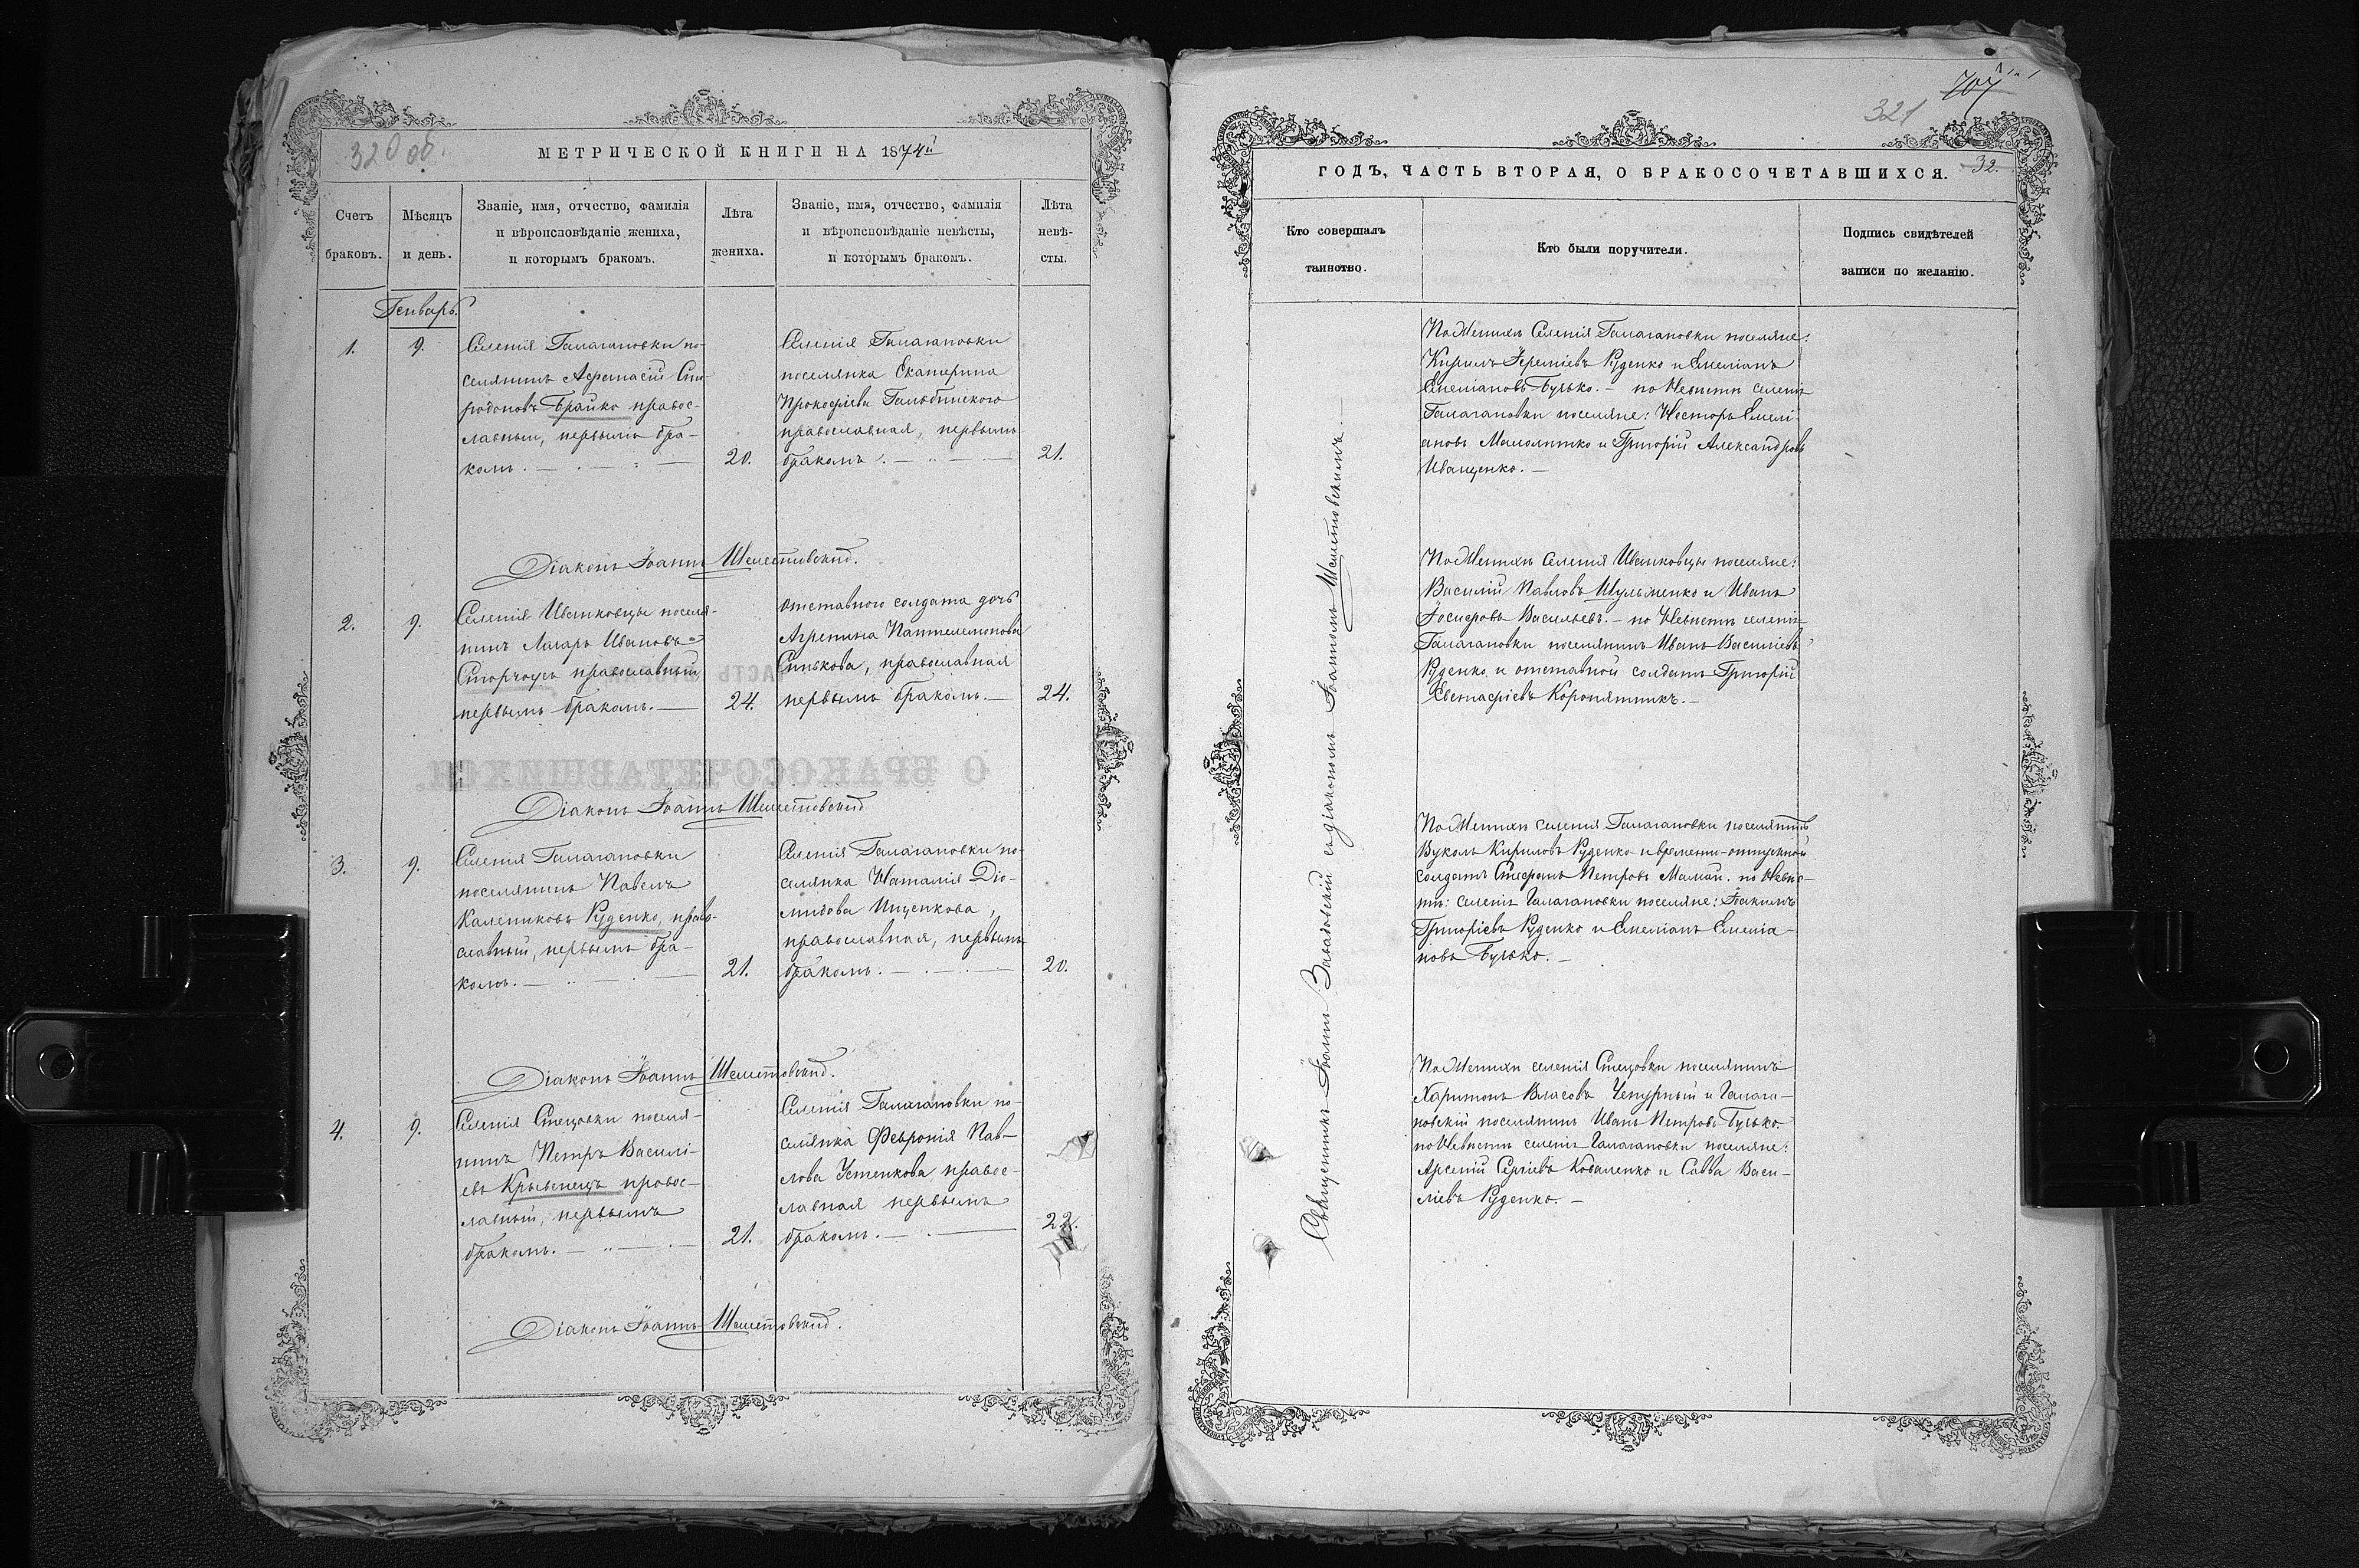 320 об.
МЕТРИЧЕСКОЙ КНИГИ НА 1874й
Счетъ
браковъ.
Мѣсяцъ
и день.
Званіе, имя, отчество, фамилія
и вѣроисповѣданіе жениха,
и которымъ бракомъ.
Лѣта
жениха.
Званіе, имя, отчество, фамилія
и вѣроисповѣданіе невѣсты,
и которымъ бракомъ.
Лѣта
невѣ-
сты.
Генварь.
1.
9.
Селенія Галагановки по-
селянинъ Афанасій Спи-
ридоновъ Брайко правос-
лавный, первымъ бра-
комъ.
20.
Селенія Галагановки
поселянка Екатерина
Прокофіева
православная, первымъ
бракомъ.
21.
Діаконъ Іоаннъ Шеметовскій.
2.
9.
Селенія Иванковцы поселя-
нинъ Лазарь Ивановъ
православный
первымъ бракомъ.
24.
отставного солдата дочь
Агрепина Пантелемонова
Синькова, православная
первымъ бракомъ.
24.
О БРАКОСОЧЕТАВШИХСЯ.
Діаконъ Іоаннъ Шеметовскій
3.
9.
Селенія Галагановки
поселянинъ Павелъ
Калениковъ Руденко, право-
славный, первымъ бра-
комъ.
21.
Селенія Галагановки по-
селянка Наталія Діо-
мидова Ищенкова,
православная, первымъ
бракомъ.
20.
Діаконъ Іоаннъ Шеметовскій.
4.
9.
Селенія Стецовки поселя-
нинъ Петръ Василі-
евъ правос-
лавный, первымъ
бракомъ.
21.
Селенія Галагановки по-
селянка Февронія Пав-
лова Устенкова правос-
лавная первымъ
бракомъ.
22.
Діаконъ Іоаннъ Шеметовскій.
707
321
ГОДЪ, ЧАСТЬ ВТОРАЯ, О БРАКОСОЧЕТАВШИХСЯ.
32.
Кто совершалъ
таинство.
Кто были поручители.
Подпись свидѣтелей
записи по желанію.
Священникъ Іоаннъ Завадовскій съ діакономъ Іоанномъ Шеметовскимъ.
По Женихѣ Селенія Галагановки поселяне:
Кирилъ Іереміевъ Руденко и Емеліанъ
Емеліановъ Бузько. - по Невѣстѣ селенія
Галагановки поселяне: Несторъ Емелі-
ановъ и Григорій Александровъ
Иващенко.
По Женихѣ Селенія Иванковцы поселяне:
Василій Павловъ Шульженко и Иванъ
Іосифовъ Васильевъ. - по Невѣстѣ селенія
Галагановки поселянинъ Иванъ Василіевъ
Руденко и отставной солдатъ Григорій
Евстафіевъ Коропятникъ.
По Женихѣ селенія Галагановки поселянинъ
Вуколъ Кириловъ Руденко и временно-отпускной
солдатъ Стефанъ Петровъ Мамай. по Невѣс-
тѣ: селенія Галагановки поселяне: Іоакимъ
Григоріевъ Руденко и Емеліанъ Емеліа-
новъ Бузько.
По Женихѣ селенія Стецовки поселянинъ
Харитонъ Власовъ Чепурный и Галага-
новскій поселянинъ Иванъ Петровъ Бузько.
по Невѣстѣ селенія Галагановки поселяне:
Арсеній Сергіевъ Коваленко и Савва Васи-
ліевъ Руденко.